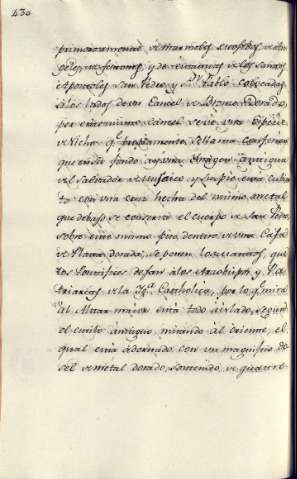 430
primorosamente de marmoles
y de estatuas de los Santos
Apostoles San Pedro y Sn. Pablo colocadas
à los lados de un Cancel de Bronce dorado,
por este mismo cancel se ve una especie
de Nicho q.e propiamente se llama Confesion
en su fondo ay una Imagen antigua
del Salvador de Musaico y
con una hecha del mismo metal
que debajo se conserva el cuerpo de San Pedro,
sobre este mismo sitio dentro de una Caja
de Plata dorada, se ponen los que
los Pontifices dàn à los Arzobispos y Pa-
triarcas de la Yg.a Catholica, por lo q.e mira
al Altar mayor està todo aislado, segun
el estilo antiguo mirando al Oriente, el
qual està adornado con un magnifico do-
sel de metal dorado, sostenido de quatro